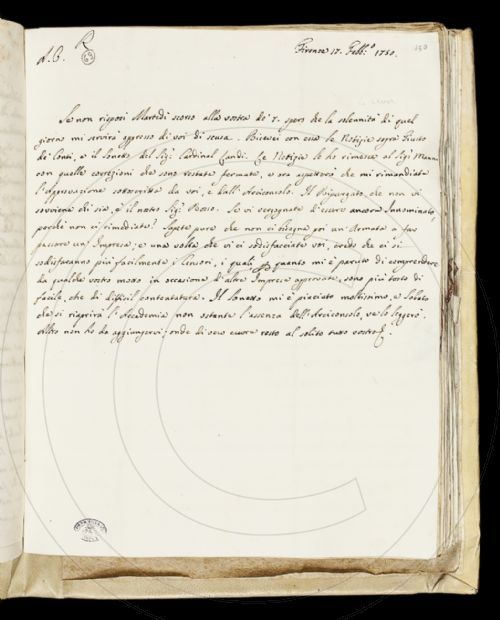 A. C. R Firenze 17. Febb.º 1750. 150
Se non risposi Martedì scorso alla vostra de' 7. spero che la solennità di quel
giorno mi servirà appresso di voi di scusa. Ricevei con essa le Notizie sopra Giusto
de' Conti, e il Sonetto del Sig. Cardinal Landi. Le Notizie le ho rimesse al Sig. Manni
con quelle correzioni che sono restate fermate, e ora aspetterò che mi rimandiate
l'Approvazione sottoscritta da voi, e dall'Arciconsolo. Il Ripurgato, che non vi
sovviene chi sia, è il nostro Sig. Bosso. Se vi vergognate d'essere ancora Innominato,
perchè non ci rimediate? Sapete pure che non ci bisogna poi un'Armata a far
passare un'Impresa; e una volta che vi ci sodisfacciate voi, credo che ci si
sodisfaranno più facilmente i Censori, i quali per quanto mi è paruto di comprendere
da qualche vostro moto in occasione d'altre Imprese approvate, sono più tosto di
facile, che di difficil contentatura. Il Sonetto mi è piaciuto moltissimo, e Sabato
che si riaprirà l'Accademia non ostante l'assenza dell'Arciconsolo, ve lo leggerò.
Altro non ho da aggiungervi; onde di vero cuore resto al solito tutto vostro